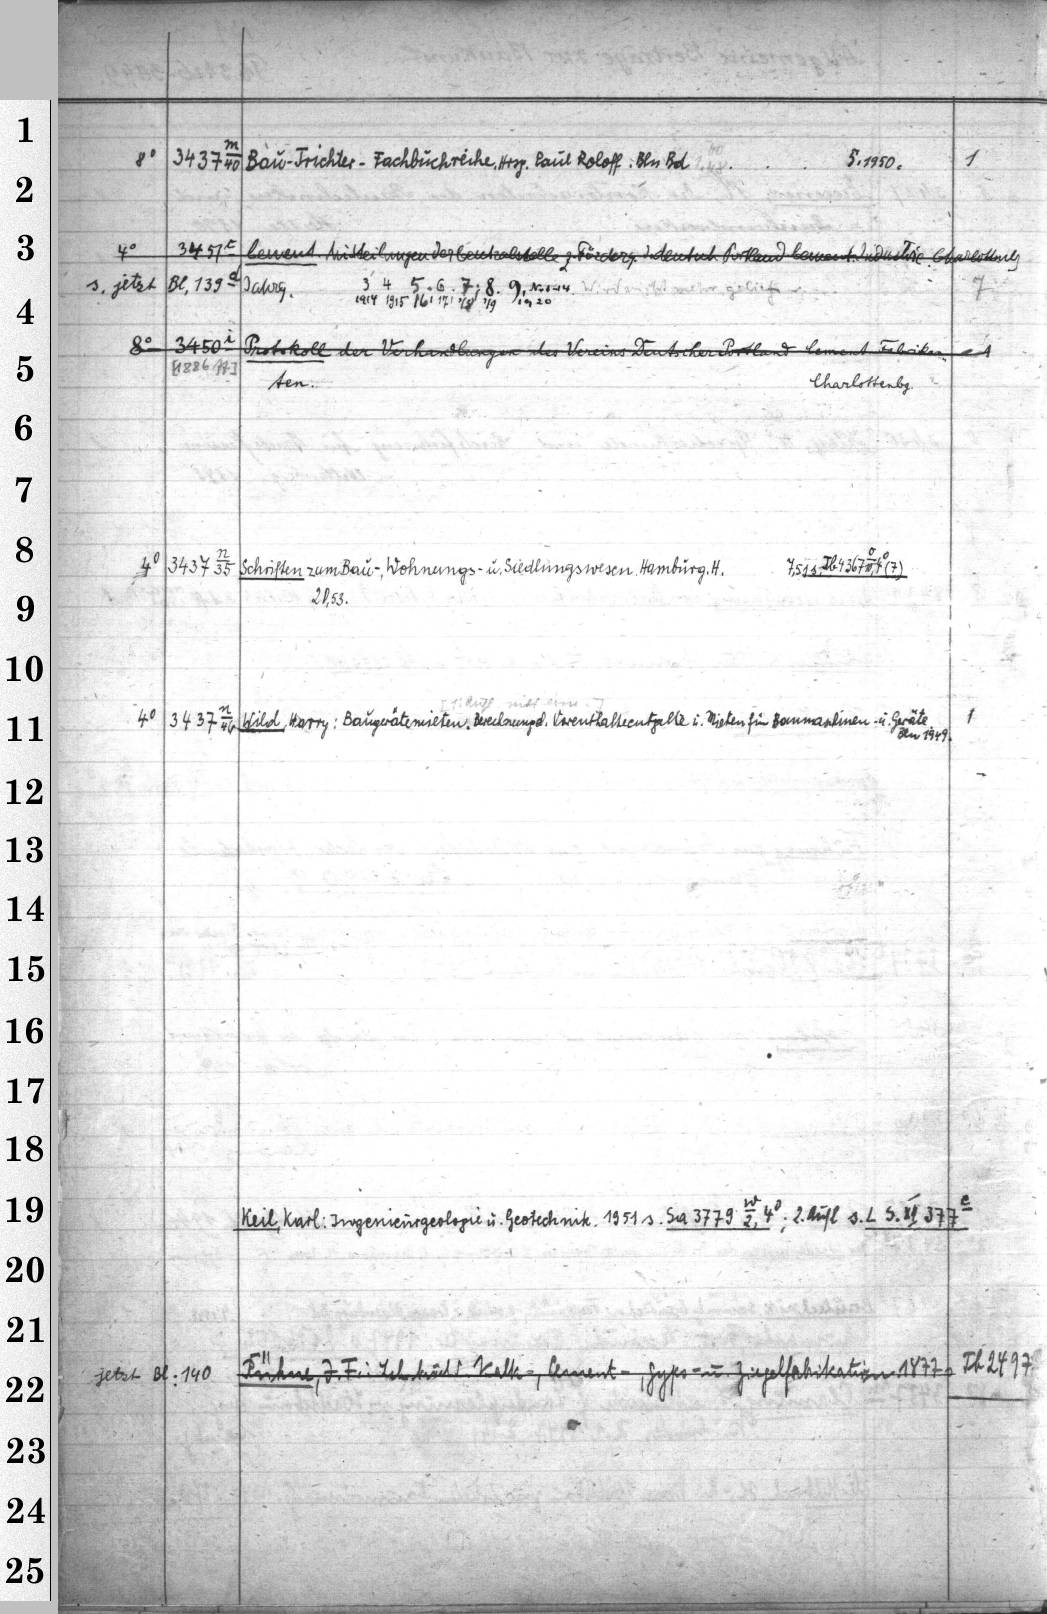 1
2
3
4
5
6
7
8
9
10
11
12
13
14
15
16
17
18
19
20
21
22
23
24
25
8° 3437 m/40 Bau-Trichter-Fachbuchreihe. Hrsg. Paul Roloff. Bln Bd 5.1950. 1
4° 3451 c Cement. Mitteilungen der Centralstelle z. Förderg. d. deutsch. Portland Cement Industrie. Charlottenbg
s. jetzt Bl, 139 d Jahrg. 3 4 5. 6. 7. 8. 9, 7
1914 1915 16 17 18 19 20
8° 3450 i Protokoll der Verhandlungen des Vereins Deutscher Portland Cement Fabrikan- 1
[1886 ff] ten. Charlottenbg.
4° 3437 n/35 Schriften zum Bau-, Wohnungs- u. Siedlungswesen. Hamburg. H. 7,51 s. Tb 4367 4° (7)
20,53.
4° 3437 n/46 Wild, Harry: Baugerätemieten. Berechnung d. Vorenthalteentgelte u. Mieten für Baumaschinen u. Geräte 1
Bln 1949.
Keil, Karl: Ingenieurgeologie u. Geotechnik. 1951 s. Sa 3779 w/2, 4°; 2. Aufl s. L S. XI 377 e
jetzt Bl: 140 Pühne, J. F.: Kalk-, Cement-, Gyps- u. Ziegelfabrikation. 1877 Tb 2497